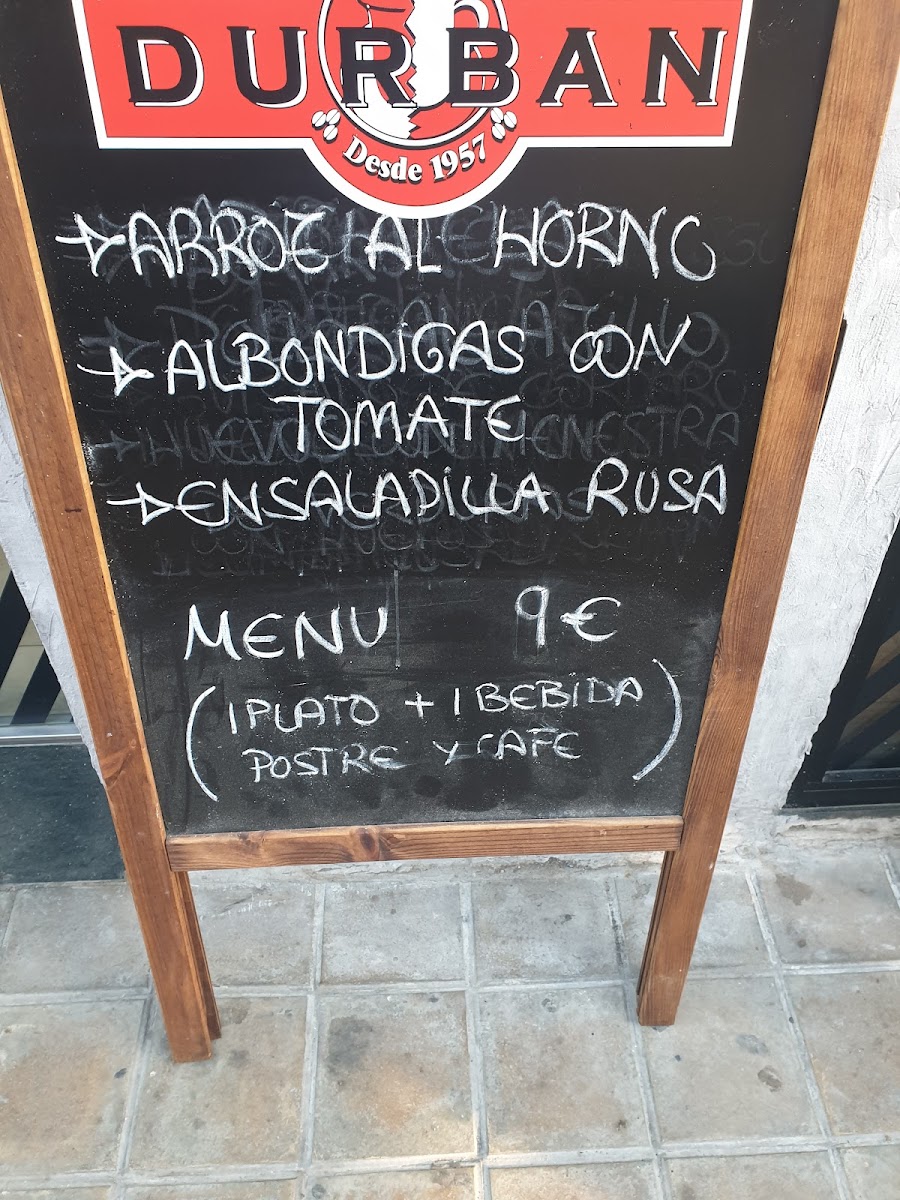 DURBAN
Desde 1957
ARROZ AL HORNO
ALBONDIGAS CON
TOMATE
ENSALADILLA RUSA
MENU 9€
(1 PLATO + 1 BEBIDA
POSTRE Y CAFE)